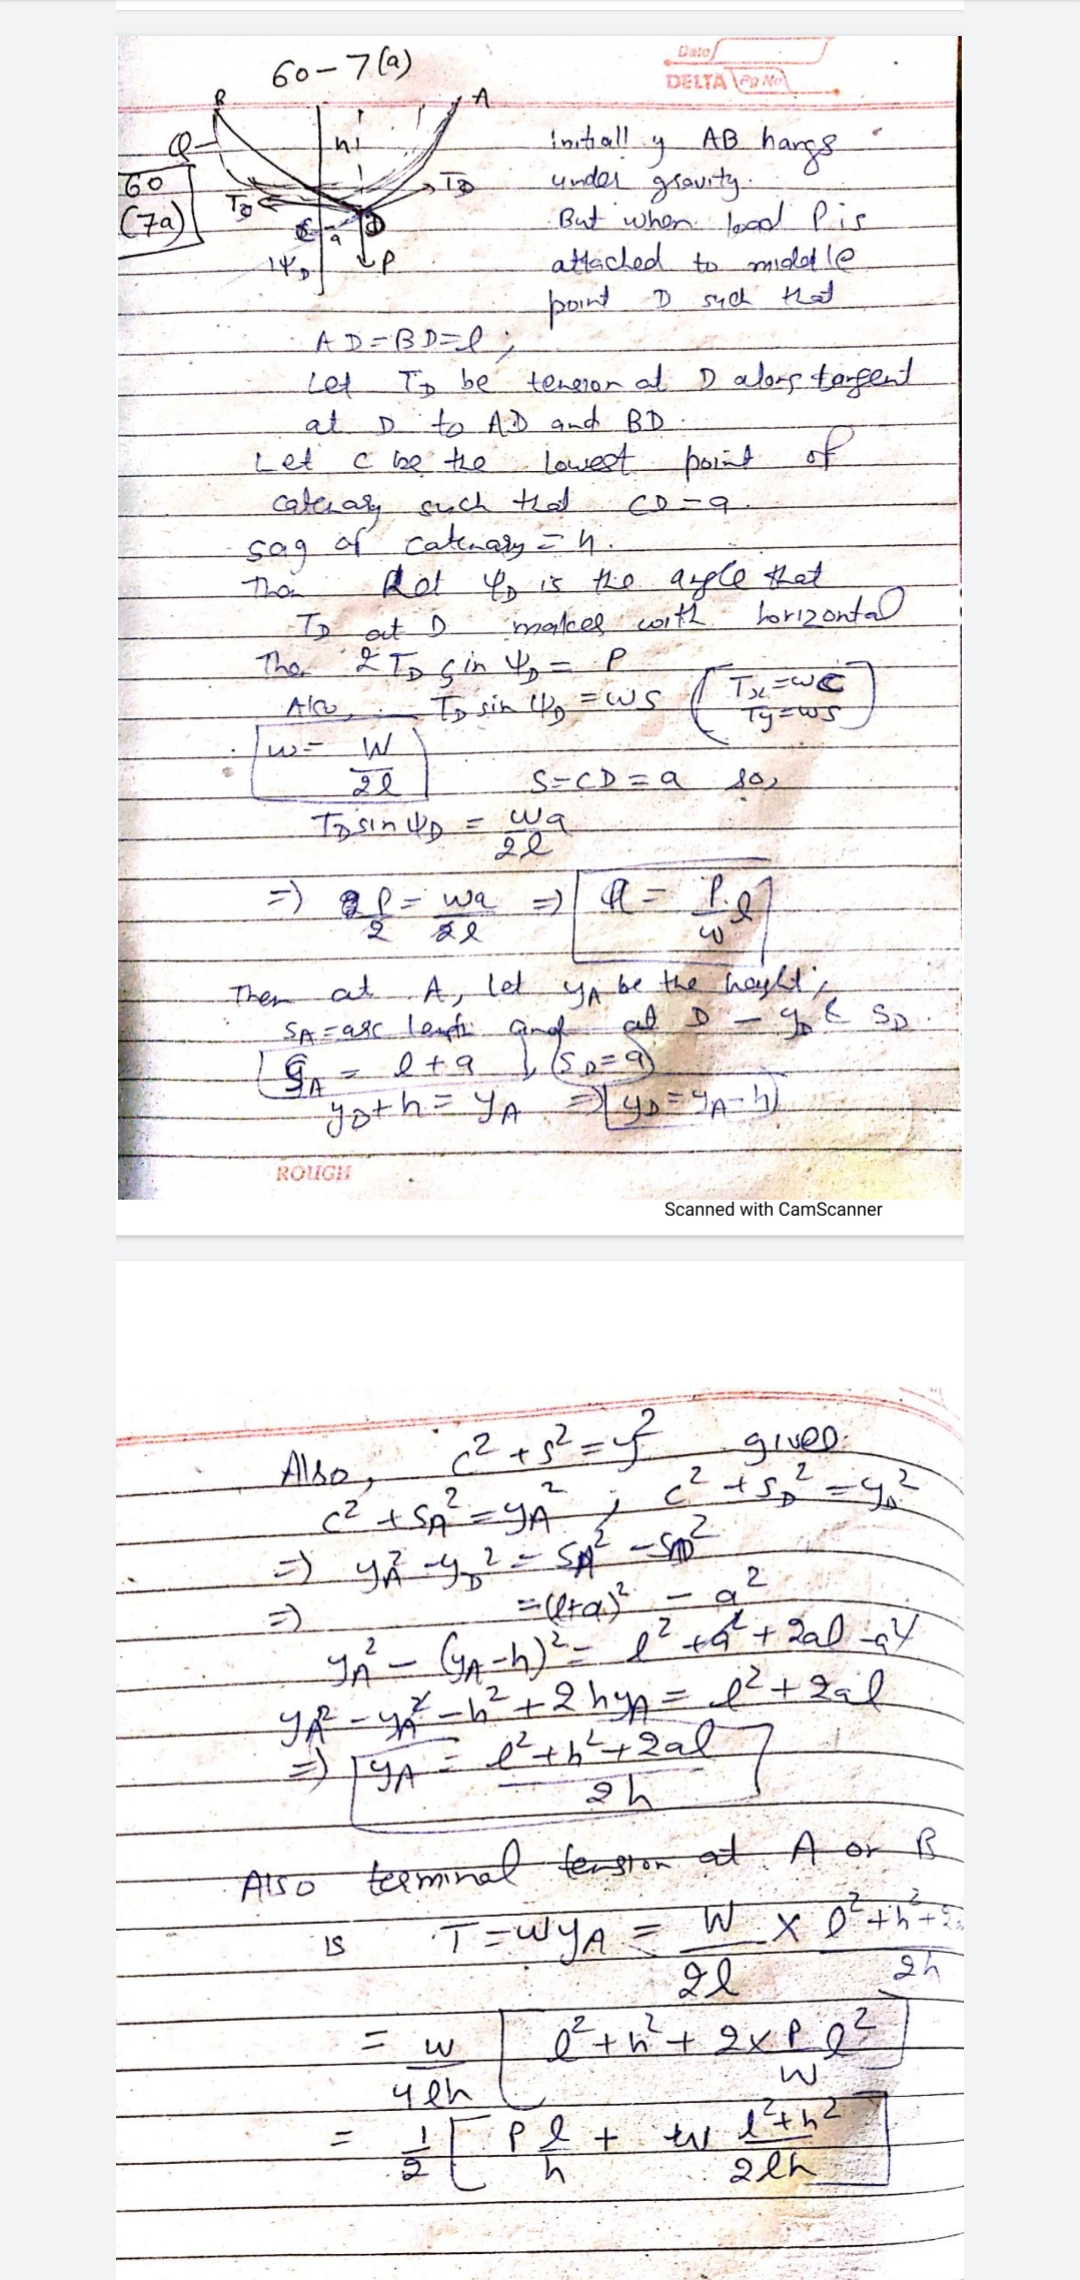 60-7(a)
Date
DELTA Pg No
B
A
Q-
h
60
(7a)
T_D
T_D
C
a
D
ψ_D
P
Initially AB hangs
under gravity.
But when load P is
attached to middle
point D such that
AD=BD=l;
Let T_D be tension at D along tangent
at D to AD and BD.
Let C be the lowest point of
catenary such that CD=a.
sag of catenary = h.
Then Let ψ_D is the angle that
T_D at D makes with horizontal
Then 2T_D sin ψ_D = P
Also, T_D sin ψ_D = ws ( Tx=wc
Ty=ws )
w = W/2l
S=CD=a so,
T_D sin ψ_D = wa/2l
=> P/2 = wa/2l => a = P/w . l
Then at A, let y_A be the height,
S_A = arc length and at D - y_D & S_D.
S_A = l+a, (S_D=a)
y_D+h = y_A => y_D = y_A-h
ROUGH
Scanned with CamScanner
Also, c²+s²=y² gives
c²+S_A²=y_A² ; c²+S_D²=y_D²
=> y_A²-y_D² = S_A²-S_D²
=> =(l+a)² - a²
y_A² - (y_A-h)² = l²+a²+2al-a²
y_A²-y_A²-h²+2hy_A = l²+2al
=> y_A = l²+h²+2al/2h
Also terminal tension at A or B
is T=wy_A = W/2l × l²+h²+2a/2h
= w/4lh [ l²+h²+2×P/W l² ]
= 1/2 [ P l/h + w l²+h²/2lh ]